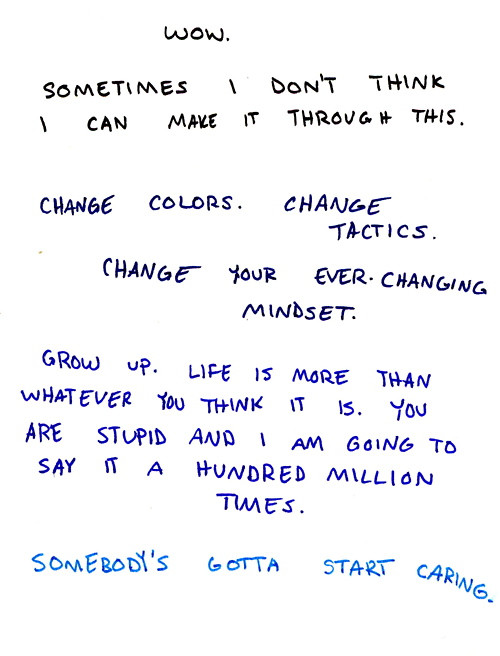 WOW.
SOMETIMES I DON'T THINK
I CAN MAKE IT THROUGH THIS.
CHANGE COLORS. CHANGE
TACTICS.
CHANGE YOUR EVER-CHANGING
MINDSET.
GROW UP. LIFE IS MORE THAN
WHATEVER YOU THINK IT IS. YOU
ARE STUPID AND I AM GOING TO
SAY IT A HUNDRED MILLION
TIMES.
SOMEBODY'S GOTTA START CARING.